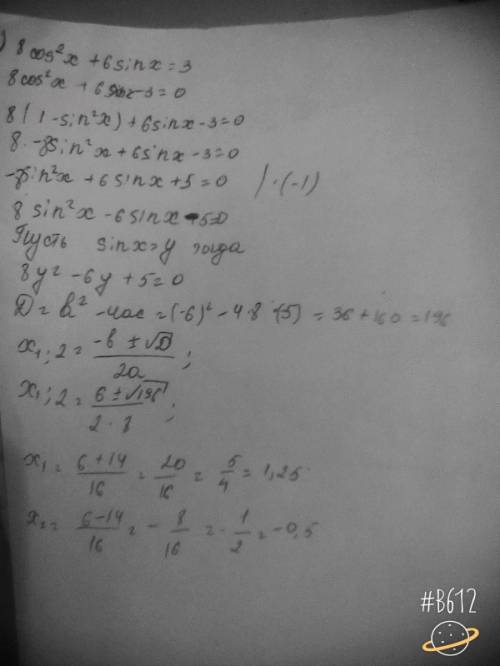 ) 8 cos²x + 6 sin x = 3
8 cos²x + 6 sin x - 3 = 0
8 (1 - sin²x) + 6 sin x - 3 = 0
8 - 8 sin²x + 6 sin x - 3 = 0
-8 sin²x + 6 sin x + 5 = 0 / · (-1)
8 sin²x - 6 sin x - 5 = 0
Пусть sin x = y тогда
8y² - 6y + 5 = 0
D = b² - 4ac = (-6)² - 4·8·(5) = 36 + 160 = 196
x₁;2 = -b ± √D / 2a ;
x₁;2 = 6 ± √196 / 2·8 ;
x₁ = 6+14 / 16 = 20 / 16 = 5 / 4 = 1,25
x₂ = 6-14 / 16 = - 8 / 16 = - 1 / 2 = -0,5
#B612